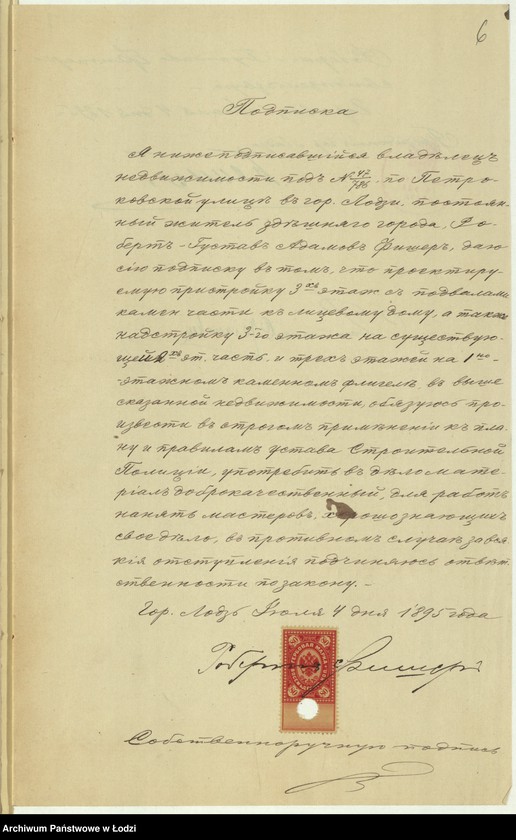 6
Подписка
Я нижеподписавшійся владѣлецъ
недвижимости подъ № 47/786 по Петро-
ковской улицѣ въ гор. Лодзи, постоян-
ный житель здѣшняго города, Ро-
бертъ-Густавъ Адамовъ Фишеръ, даю
сію подписку въ томъ, что проектиру
емую пристройку 3хъ этаж съ подвалами
камен части къ лицевому дому, а также
надстройку 3-го этажа на существую-
щей 2хъ эт. часть и трехъ этажей на 1но-
этажномъ каменномъ флигелѣ, въ выше
сказанной недвижимости, обязуюсь про-
извести въ строгомъ примѣненіи къ пла-
ну и правиламъ устава Строительной
Полиціи, употребить въ дѣло мате-
ріалъ доброкачественный, для работъ
нанять мастеровъ, хорошо знающихъ
свое дѣло, въ противномъ случаѣ за вся
кія отступленія подчиняюсь отвѣт
ственности по закону. –
Гор. Лодзь Іюля 4 дня 1895 года
Робертъ Фишеръ
Собственноручную подпись
Archiwum Państwowe w Łodzi